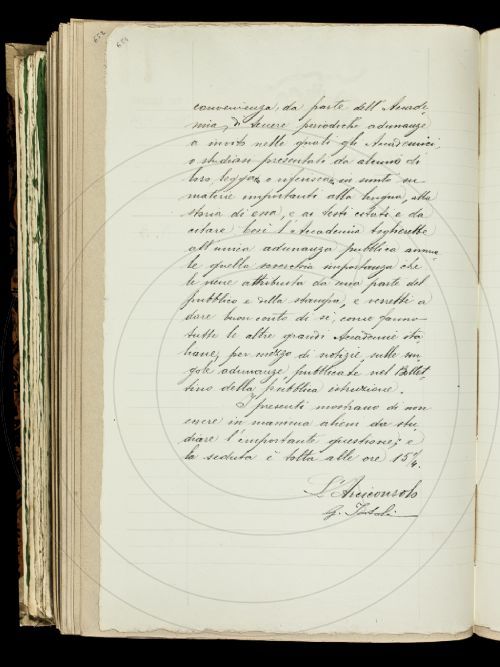 convenienza, da parte dell'Accade-
mia, di tenere periodiche adunanze
nelle quali gli Accademici,
o studiosi presentati da alcuno di
loro, leggano o riferiscano in sunto su
materie importanti alla lingua, alla
storia di essa, e ai testi citati e da
citare. Così l'Accademia toglierebbe
all'unica adunanza pubblica annua-
le quella soverchia importanza che
le viene attribuita da una parte del
pubblico e della stampa, e verrebbe a
dare buon conto di sè, come fanno
tutte le altre grandi Accademie ita-
liane, per mezzo di notizie, sulle sin-
gole adunanze, pubblicate nel Bollet-
tino della pubblica istruzione.
I presenti mostrano di non
essere in massima alieni da stu-
diare l'importante questione; e
la seduta è tolta alle ore 15 1/4.
L'Arciconsolo
G.